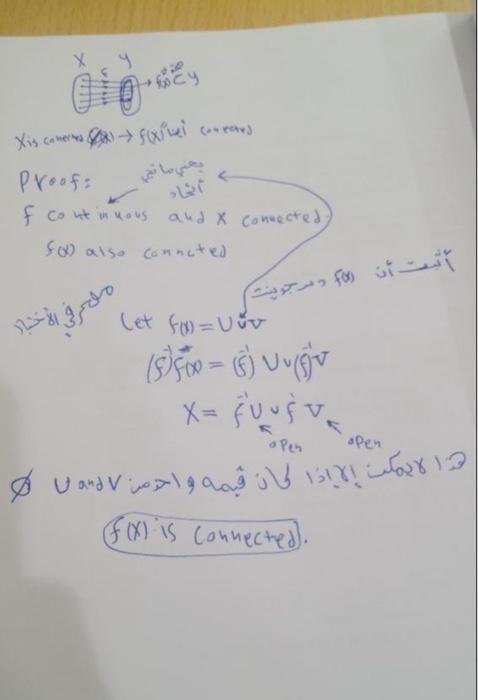 X Y
f(x) ⊂ Y
X is connected → f(x) أيضاً connected
Proof:
يعني ما في
اتحاد
f continuous and X connected
f(x) also connected
أثبت أن f(x) دسجوينت
مهم في الأختبار
Let f(x) = U ∪ V
(f⁻¹) f(x) = (f⁻¹) U ∪ (f⁻¹) V
X = f⁻¹ U ∪ f⁻¹ V
open open
هذا لا يمكن إلا إذا كان قيمه واحد من U and V ∅
f(X) is connected.